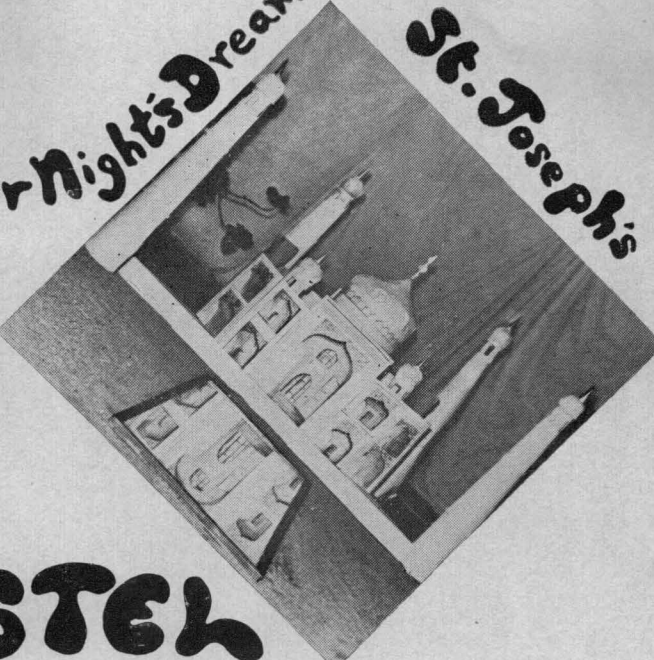 r Night's Dream
St. Joseph's
STEL